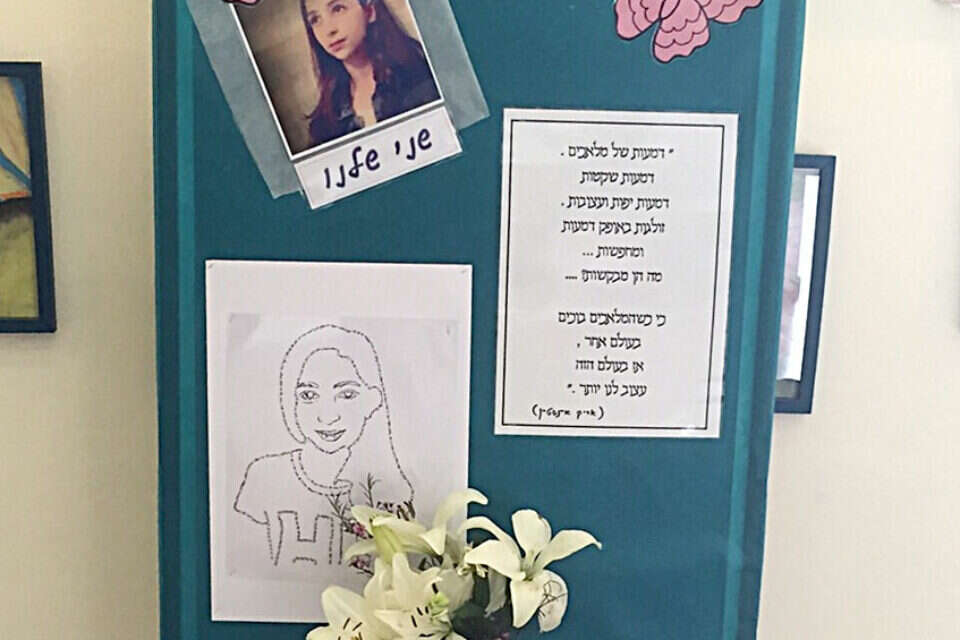 שני שלנו
" דמעות של מלאכים .
דמעות שקטות
דמעות יפות ועצובות .
זולגות באופק דמעות
ומחפשות ...
מה הן מבקשות? ....
כי כשהמלאכים בוכים
בעולם אחר ,
אז בעולם הזה
עצוב לנו יותר . "
(אריק איינשטיין)
H